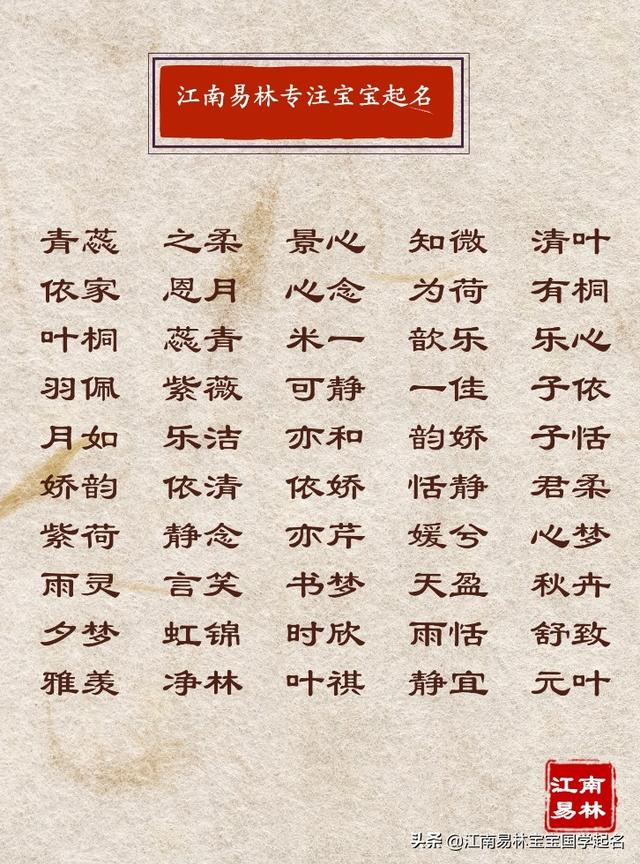 江南易林专注宝宝起名
青蕊 之柔 景心 知微 清叶
依家 恩月 心念 为荷 有桐
叶桐 蕊青 米一 歆乐 乐心
羽佩 紫薇 可静 一佳 子依
月如 乐洁 亦和 韵娇 子恬
娇韵 依清 依娇 恬静 君柔
紫荷 静念 亦芹 媛兮 心梦
雨灵 言笑 书梦 天盈 秋卉
夕梦 虹锦 时欣 雨恬 舒致
雅羡 净林 叶祺 静宜 元叶
江南
易林
头条 @江南易林宝宝国学起名